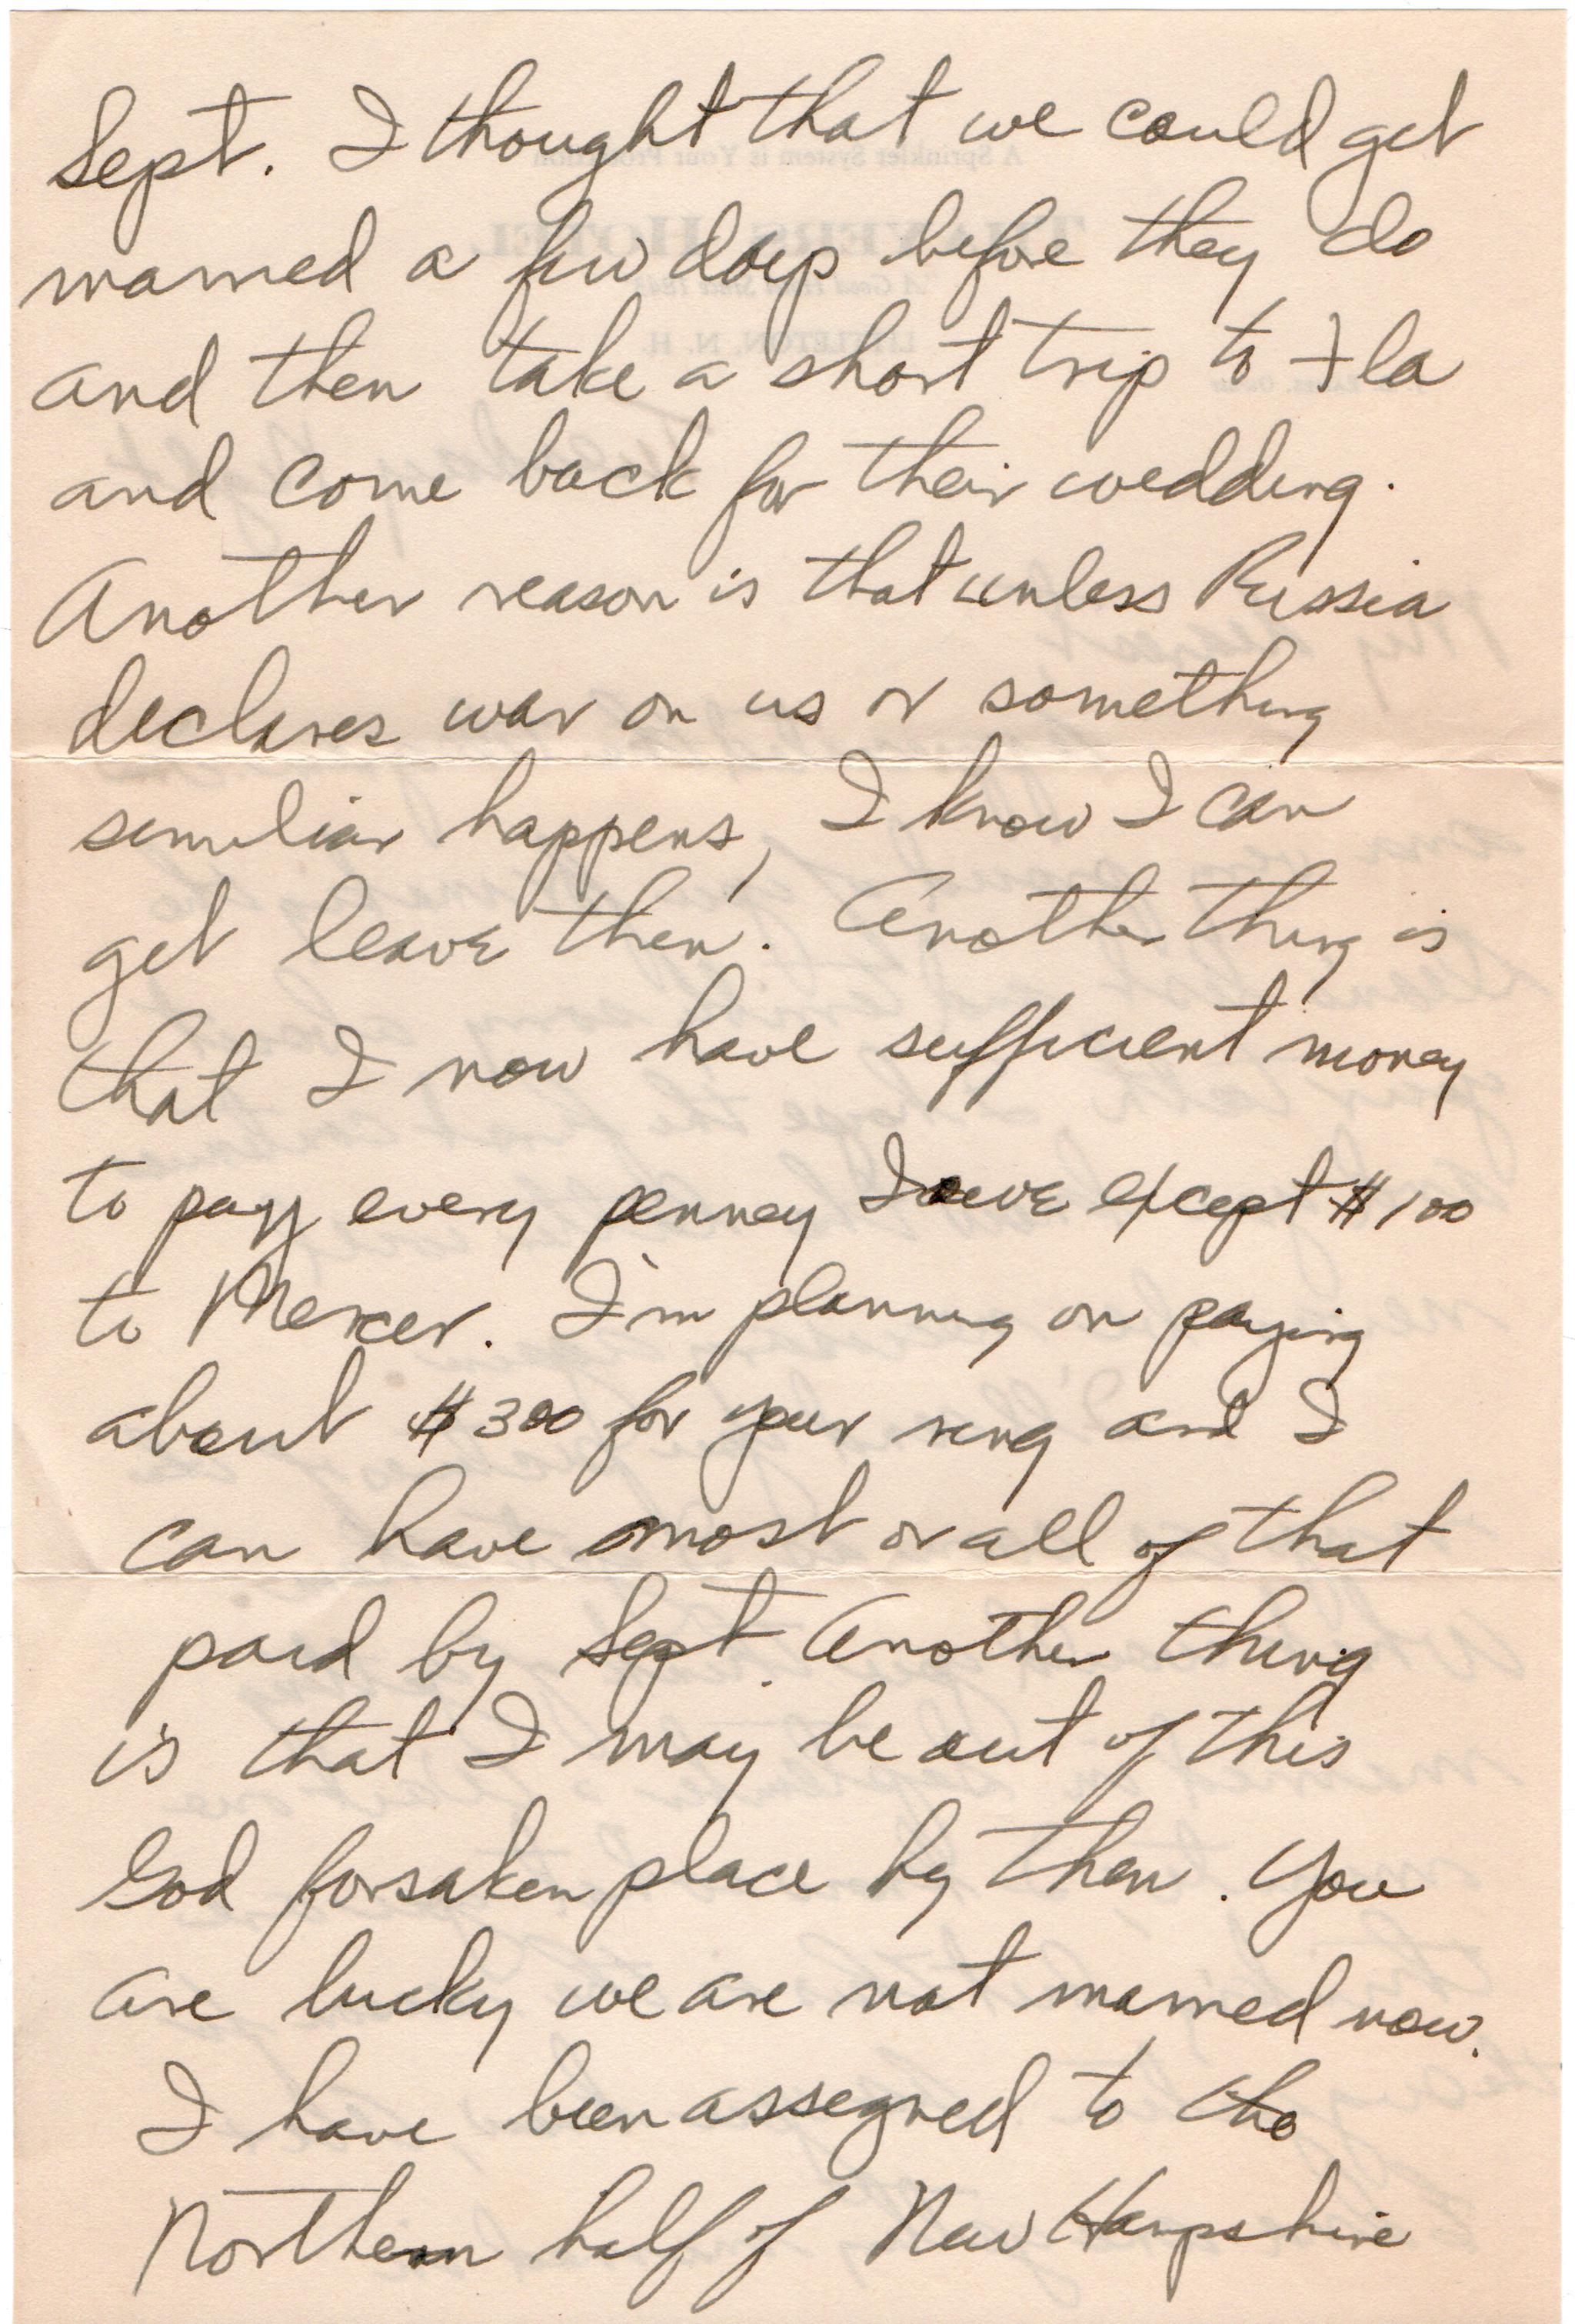 Sept. I thought that we could get
married a few days before they do
and then take a short trip to Fla
and come back for their wedding.
Another reason is that unless Russia
declares war on us or something
similiar happens, I know I can
get leave then. Another thing is
that I now have sufficient money
to pay every penney I owe except $100
to Mercer. I'm planning on paying
about $300 for your ring and I
can have most or all of that
paid by Sept. Another thing
is that I may be out of this
God forsaken place by then. You
are lucky we are not married now.
I have been assigned to the
Northern half of New Hampshire